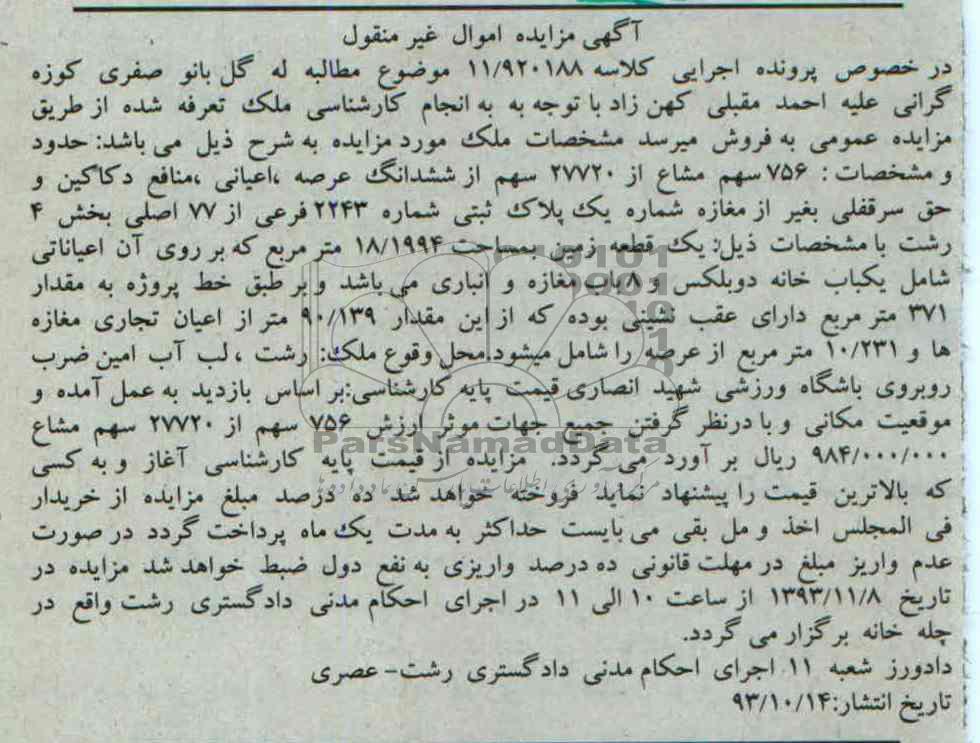 آگهی مزایده اموال غیر منقول
در خصوص پرونده اجرایی کلاسه ۱۱/۹۲۰۱۸۸ موضوع مطالبه له گل بانو صفری کوزه
گرانی علیه احمد مقبلی کهن زاد با توجه به به انجام کارشناسی ملک تعرفه شده از طریق
مزایده عمومی به فروش میرسد مشخصات ملک مورد مزایده به شرح ذیل می باشد: حدود
و مشخصات : ۷۵۶ سهم مشاع از ۲۷۷۲۰ سهم از ششدانگ عرصه ،اعیانی ،منافع دکاکین و
حق سرقفلی بغیر از مغازه شماره یک پلاک ثبتی شماره ۲۲۴۳ فرعی از ۷۷ اصلی بخش ۴
رشت با مشخصات ذیل: یک قطعه زمین بمساحت ۱۸/۱۹۹۴ متر مربع که بر روی آن اعیاناتی
شامل یکباب خانه دوبلکس و ۸ باب مغازه و انباری می باشد و بر طبق خط پروژه به مقدار
۳۷۱ متر مربع دارای عقب نشینی بوده که از این مقدار ۹۰/۱۳۹ متر از اعیان تجاری مغازه
ها و ۱۰/۲۳۱ متر مربع از عرصه را شامل میشود.محل وقوع ملک: رشت ، لب آب امین ضرب
روبروی باشگاه ورزشی شهید انصاری قیمت پایه کارشناسی:بر اساس بازدید به عمل آمده و
موقعیت مکانی و با در نظر گرفتن جمیع جهات موثر ارزش ۷۵۶ سهم از ۲۷۷۲۰ سهم مشاع
۹۸۴/۰۰۰/۰۰۰ ریال بر آورد می گردد. مزایده از قیمت پایه کارشناسی آغاز و به کسی
که بالاترین قیمت را پیشنهاد نماید فروخته خواهد شد ده درصد مبلغ مزایده از خریدار
فی المجلس اخذ و مل بقی می بایست حداکثر به مدت یک ماه پرداخت گردد در صورت
عدم واریز مبلغ در مهلت قانونی ده درصد واریزی به نفع دول ضبط خواهد شد مزایده در
تاریخ ۱۳۹۳/۱۱/۸ از ساعت ۱۰ الی ۱۱ در اجرای احکام مدنی دادگستری رشت واقع در
چله خانه برگزار می گردد.
دادورز شعبه ۱۱ اجرای احکام مدنی دادگستری رشت- عصری
تاریخ انتشار:۹۳/۱۰/۱۴
ParsNamadData